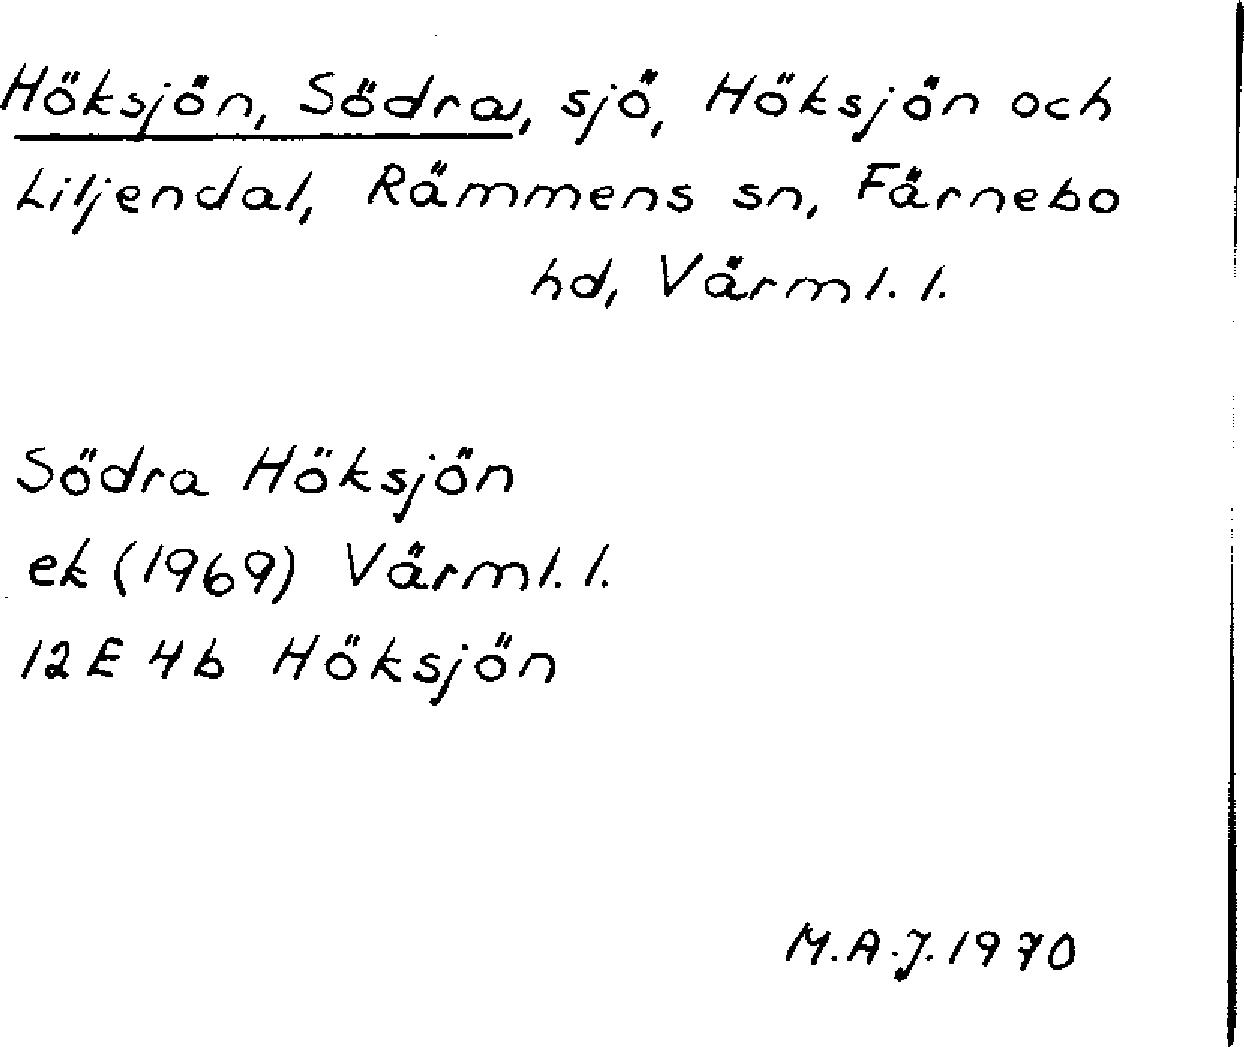 Höksjön, Södra, sjö, Höksjön och
Liljendal, Rämmens sn, Färnebo
hd, Värml. l.
Södra Höksjön
ek (1969) Värml. l.
12E 4b Höksjön
M.A.J. 1970